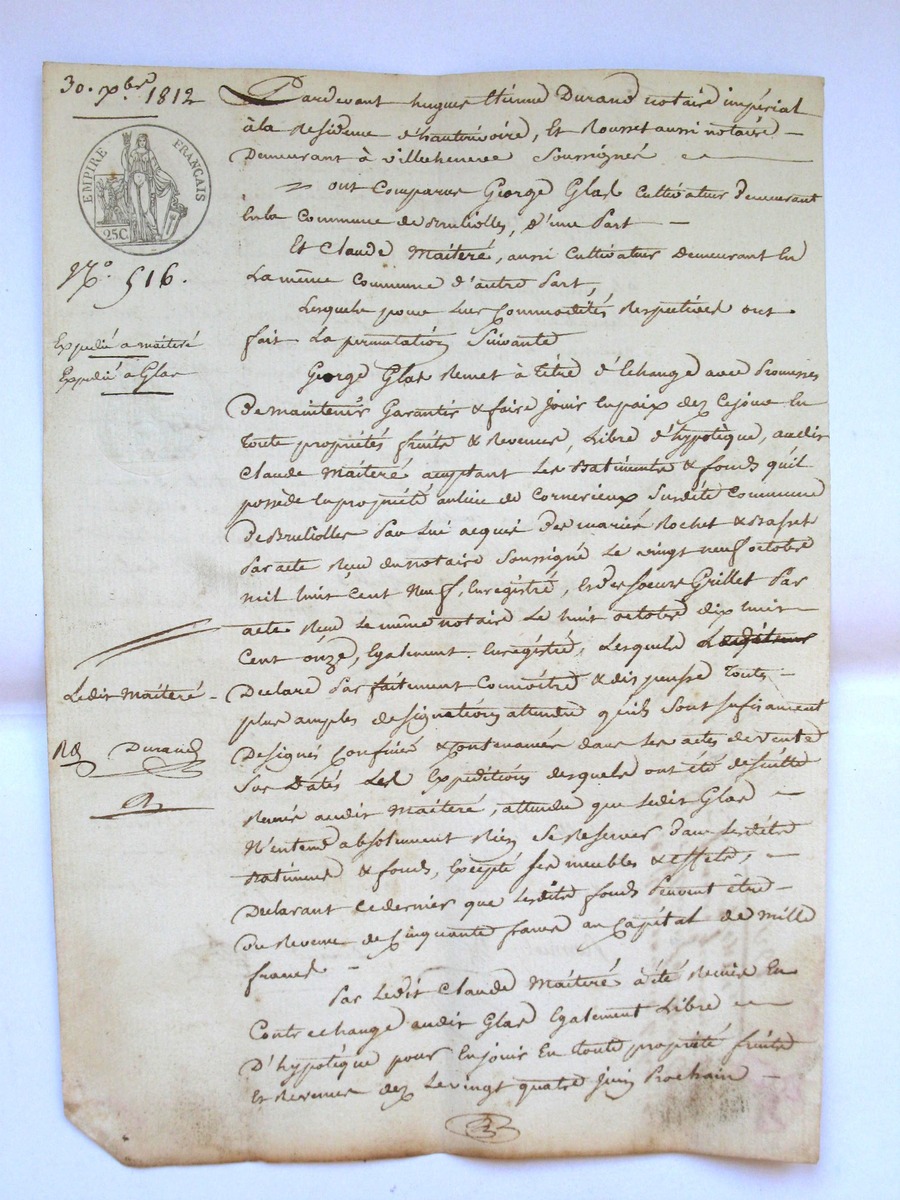 30. Xbre 1812
EMPIRE FRANÇAIS
25C
No. 516.
Expedié a maiteré
Expedié a Glas
Ledit Maiteré
Durand
Pardevant hugues Etienne Durand notaire impérial
à la Residence d'hauterivoire, Et Rousset aussi notaire
Demeurant à villechenève Soussignés
ont Comparus George Glas Cultivateur demeurant
En la Commune de Brullioles, d'une Part
Et Claude Maiteré, aussi Cultivateur Demeurant En
La même Commune d'autre Part,
Lesquels pour Leurs Commodités Respectives ont
fait La permutation Suivante
George Glas Remet à titre d'Echange avec Promesses
De maintenir Garantir & faire Jouir En paix dez Cejour En
Toute propriétés fruits & Revenus, Libre d'hypotèque, audit
Claude Maiteré acceptant Les Batiments & fonds qu'il
possede En propriété au lieu de Cornerieux Susdite Commune
De Brullioles Par Lui acquis des mariés Rochet & Basset
Par acte Reçu du notaire Soussigné Le vingt neuf octobre
mil huit Cent Neuf, Enregistré, & des Soeurs Grillet Par
acte Reçu Le même notaire Le huit octobre dix huit
Cent onze, Egalement Enregistré, Lesquels
Declare Parfaitement Connoitre & dispense Toutes
plus amples designations attendu qu'ils Sont sufisament
Designés Confinés & Contenancés dans Les actes de vente
Sus Datés Les Expeditions desquels ont été de suitte
Remis audit Maiteré, attendu que Ledit Glas
N'entend absolument Rien Se Reserver dans Lesdits
Batiments & fonds, Excepté Ses meubles & effets,
Declarant Ce dernier que Lesdits fonds Peuvent être
De Revenu de Cinquante francs au Capital de Mille
francs
Par Ledit Claude Maiteré a été Remis En
Contrechange audit Glas Egalement Libre
D'hypotèque pour En jouir En toute propriété fruits
Et Revenus dez Le vingt quatre Juin Prochain